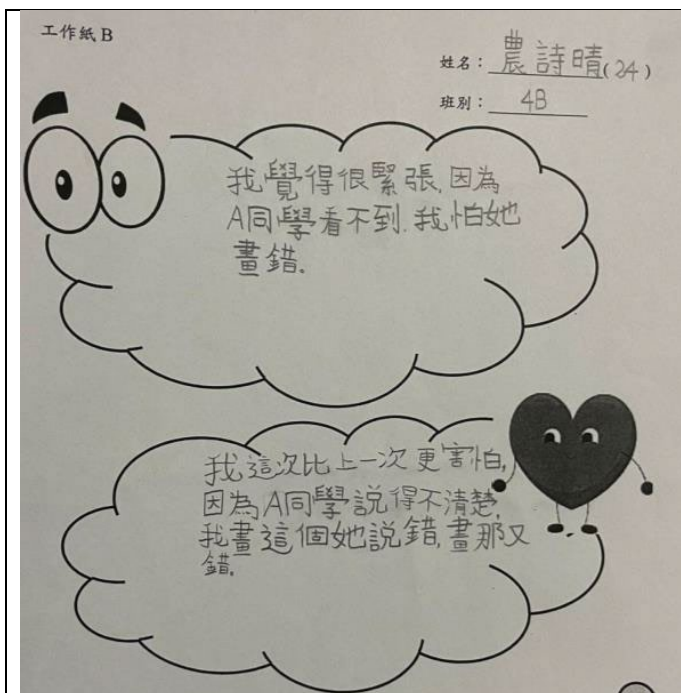 工作紙 B
姓名：農詩晴(24)
班別：4B
我覺得很緊張,因為
A同學看不到.我怕她
畫錯.
我這次比上一次更害怕,
因為A同學說得不清楚,
我畫這個她說錯,畫那又
錯.